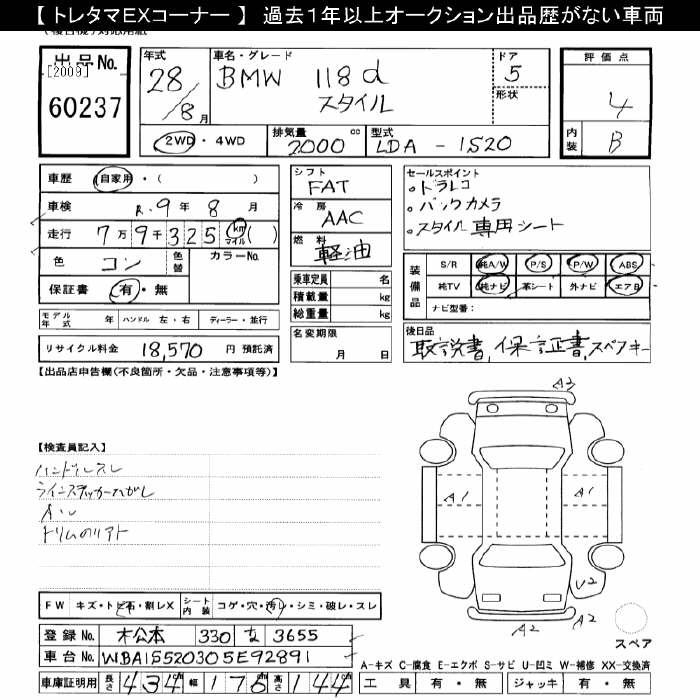 【 トレタマＥＸコーナー 】 過去１年以上オークション出品歴がない車両
出品No.
[2009]
60237
年式
28/8月
車名・グレード
BMW 118d
スタイル
ドア
5
形状
評価点
4
内装
B
2WD・4WD
排気量
2000 cc
型式
LDA - 1S20
車歴 自家用・( )
車検 R.9年 8月
走行 7万9千325 km マイル ( )
色 コン 色替 カラーNo.
保証書 有・無
モデル年式 年 ハンドル 左・右 ディーラー・並行
リサイクル料金 18,570 円 預託済
シフト
FAT
冷房
AAC
燃料
軽油
乗車定員 名
積載量 kg
総重量 kg
名変期限
月 日
セールスポイント
。ドラレコ
。バックカメラ
。スタイル専用シート
装備品
S/R 純A/W P/S P/W ABS
純TV 純ナビ 革シート 外ナビ エアB
ナビ型番：
後日品
取説書, 保証書, スペアキー
【出品店申告欄(不良箇所・欠品・注意事項等)】
【検査員記入】
ハンドルスレ
ラインステッカーハガレ
A・U
トリムのリアト
A2
A1
A1
U2
A2
A2
スペア
FW キズ・トビ石・割レX シート内装 コゲ・穴・汚レ・シミ・破レ・スレ
登録No. 松本 330 な 3655
車台No. WBA1S520305E92891
車庫証明用 長さ 434 幅 176 高さ 144
A-キズ C-腐食 E-エクボ S-サビ U-凹ミ W-補修 XX-交換済
工具 有・無 ジャッキ 有・無